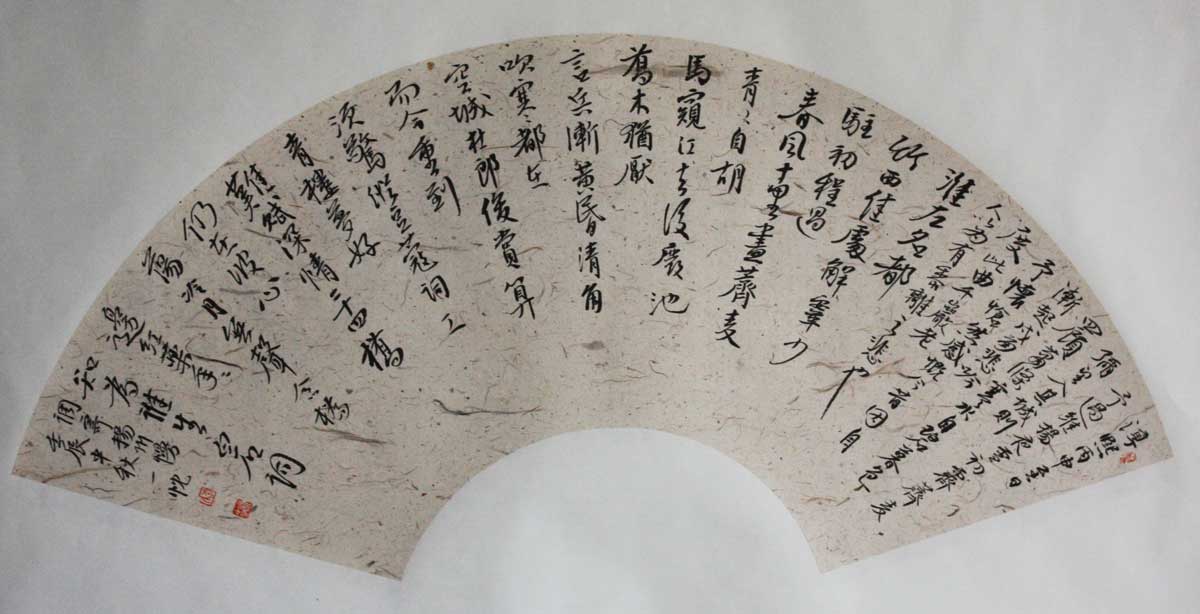 淳熙丙申至日
予過維揚夜雪初霽薺麥
彌望入其城則
四顧蕭條寒水自碧暮色
漸起戍角悲吟
予懷愴然感慨今昔因自
度此曲千巖老
人以為有黍離之悲也
淮左名都
竹西佳處解鞍少
駐初程過
春風十里盡薺麥
青〻自胡
馬窺江去後廢池
喬木猶厭
言兵漸黃昏清角
吹寒都在
空城杜郎俊賞算
而今重到
須驚縱豆蔻詞工
青樓夢好
難賦深情二十四橋
仍在波心
蕩冷月無聲念橋
邊紅葯年〻
知為誰生白石詞
調寄揚州慢
壬辰中秋一忱